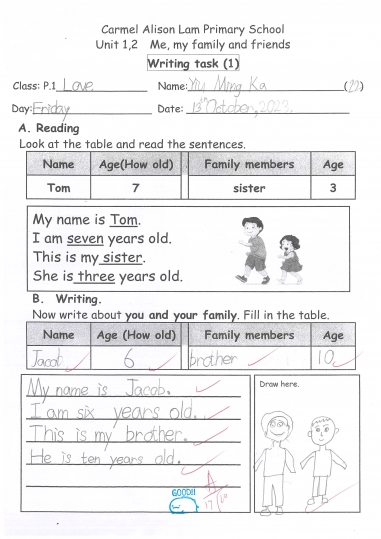 Carmel Alison Lam Primary School
Unit 1,2 Me, my family and friends
Writing task (1)
Class: P.1 Love Name: Yiu Ming Ka (22)
Day: Friday Date: 13th October, 2023.
A. Reading
Look at the table and read the sentences.
Name Age(How old) Family members Age
Tom 7 sister 3
My name is Tom.
I am seven years old.
This is my sister.
She is three years old.
B. Writing.
Now write about you and your family. Fill in the table.
Name Age (How old) Family members Age
Jacob 6 brother 10
My name is Jacob.
I am six years old.
This is my brother.
He is ten years old.
Draw here.
GOOD!!
A